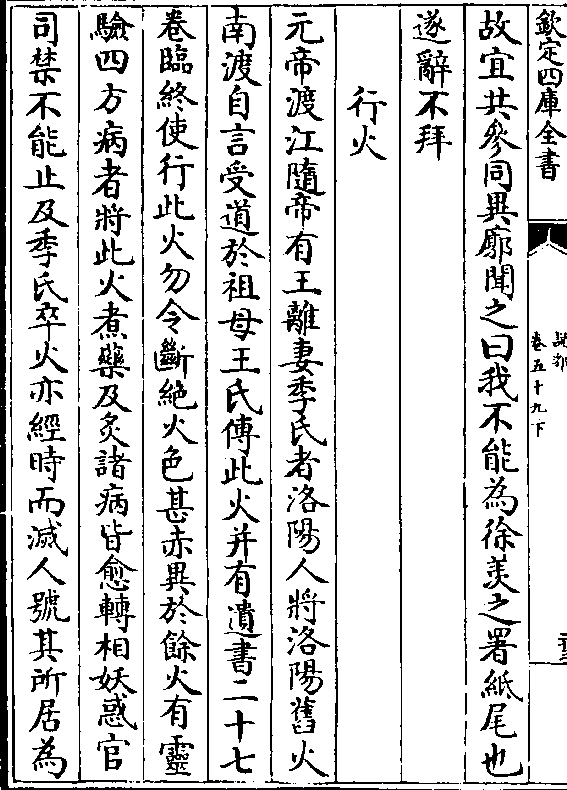 欽定四庫全書
說郛
卷五十九下
故宜共參同異廓聞之曰我不能為徐羨之署紙尾也
遂辭不拜
行火
元帝渡江隨帝有王離妻季氏者洛陽人將洛陽舊火
南渡自言受道於祖母王氏傳此火并有遺書二十七
卷臨終使行此火勿令斷絶火色甚赤異於餘火有靈
驗四方病者將此火煮藥及炙諸病皆愈轉相妖惑官
司禁不能止及季氏卒火亦經時而滅人號其所居為